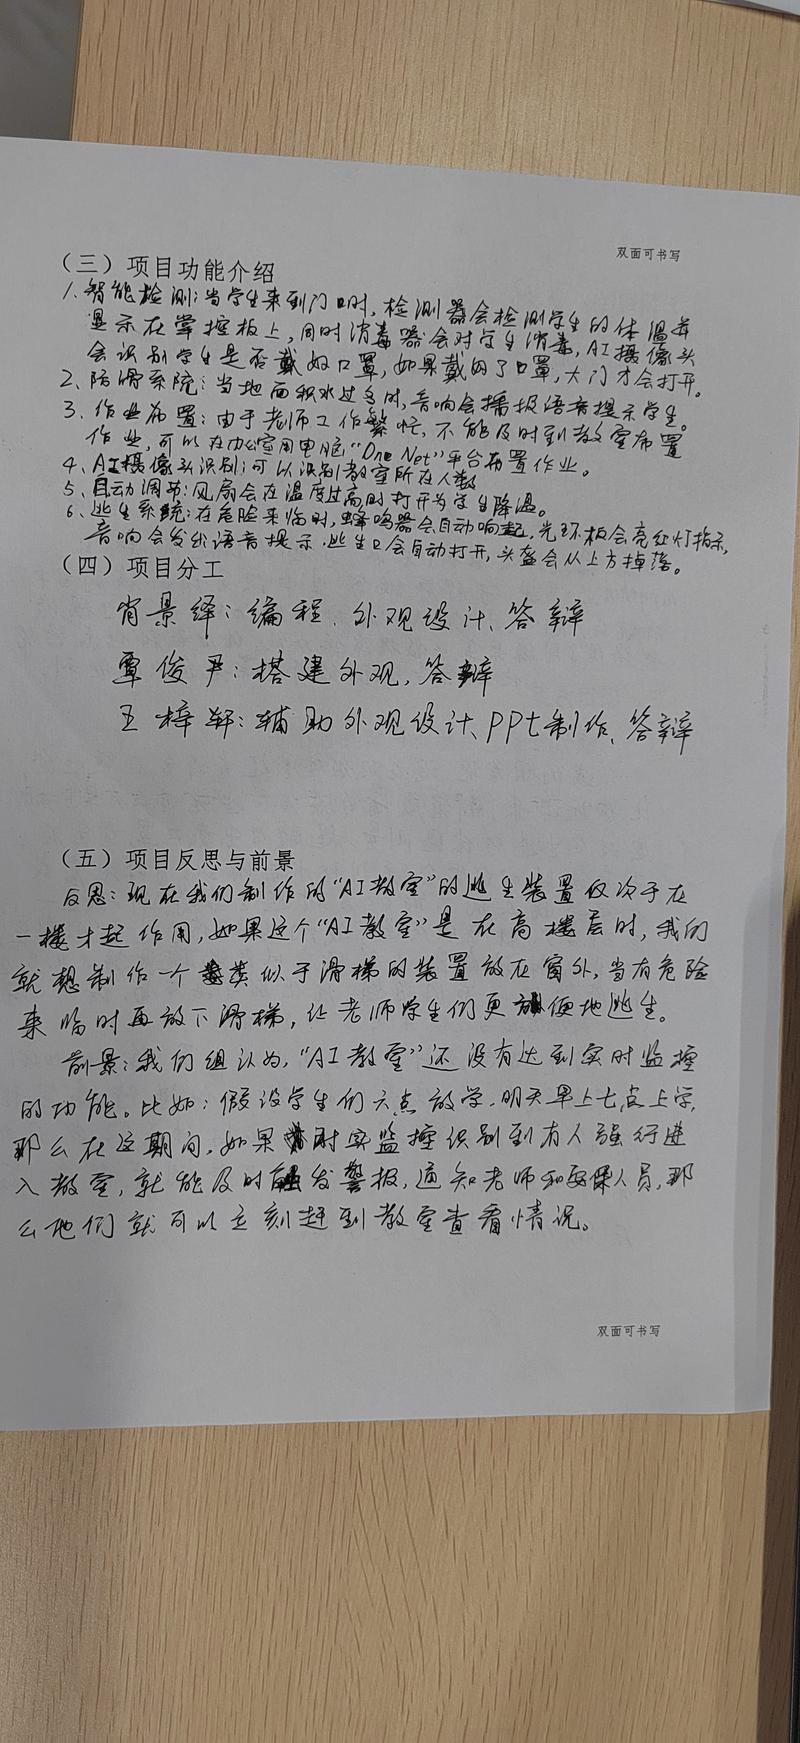 双面可书写
（三）项目功能介绍
1、智能检测：当学生来到门口时，检测器会检测学生的体温并
显示在掌控板上，同时消毒器会对学生消毒，AI摄像头
会识别学生是否戴好口罩，如果戴好了口罩，大门才会打开。
2、防滑系统：当地面积水过多时，音响会播报语音提示学生。
3、作业布置：由于老师工作繁忙，不能及时到教室布置
作业，可以在办公室用电脑“One Net”平台布置作业。
4、AI摄像头识别：可以识别教室所在人数
5、自动调节：风扇会在温度过高时打开为学生降温。
6、逃生系统：在危险来临时，蜂鸣器会自动响起，光环板会亮红灯指示，
音响会发出语音提示，逃生口会自动打开，头盔会从上方掉落。
（四）项目分工
肖景绎：编程、外观设计、答辩
覃俊尹：搭建外观，答辩
王梓轩：辅助外观设计、PPt制作、答辩
（五）项目反思与前景
反思：现在我们制作的“AI教室”的逃生装置仅次于在
一楼才起作用，如果这个“AI教室”是在高楼层时，我们
就想制作一个类似于滑梯的装置放在窗外，当有危险
来临时再放下滑梯，让老师学生们更方便地逃生。
前景：我们组认为，“AI教室”还没有达到实时监控
的功能。比如：假设学生们六点放学，明天早上七点上学，
那么在这期间，如果时实监控识别到有人强行进
入教室，就能及时触发警报，通知老师和安保人员，那
么他们就可以立刻赶到教室查看情况。
双面可书写